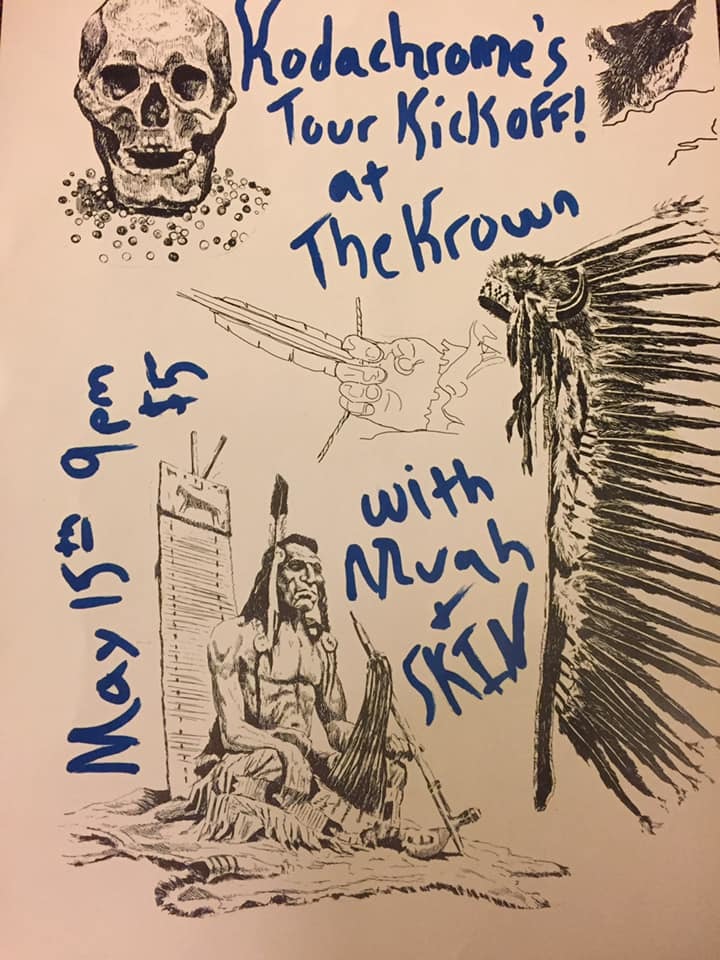 Kodachrome's
Tour Kickoff!
at
The Krown
May 15th 9pm
$5
with
Muah
+
SKIN